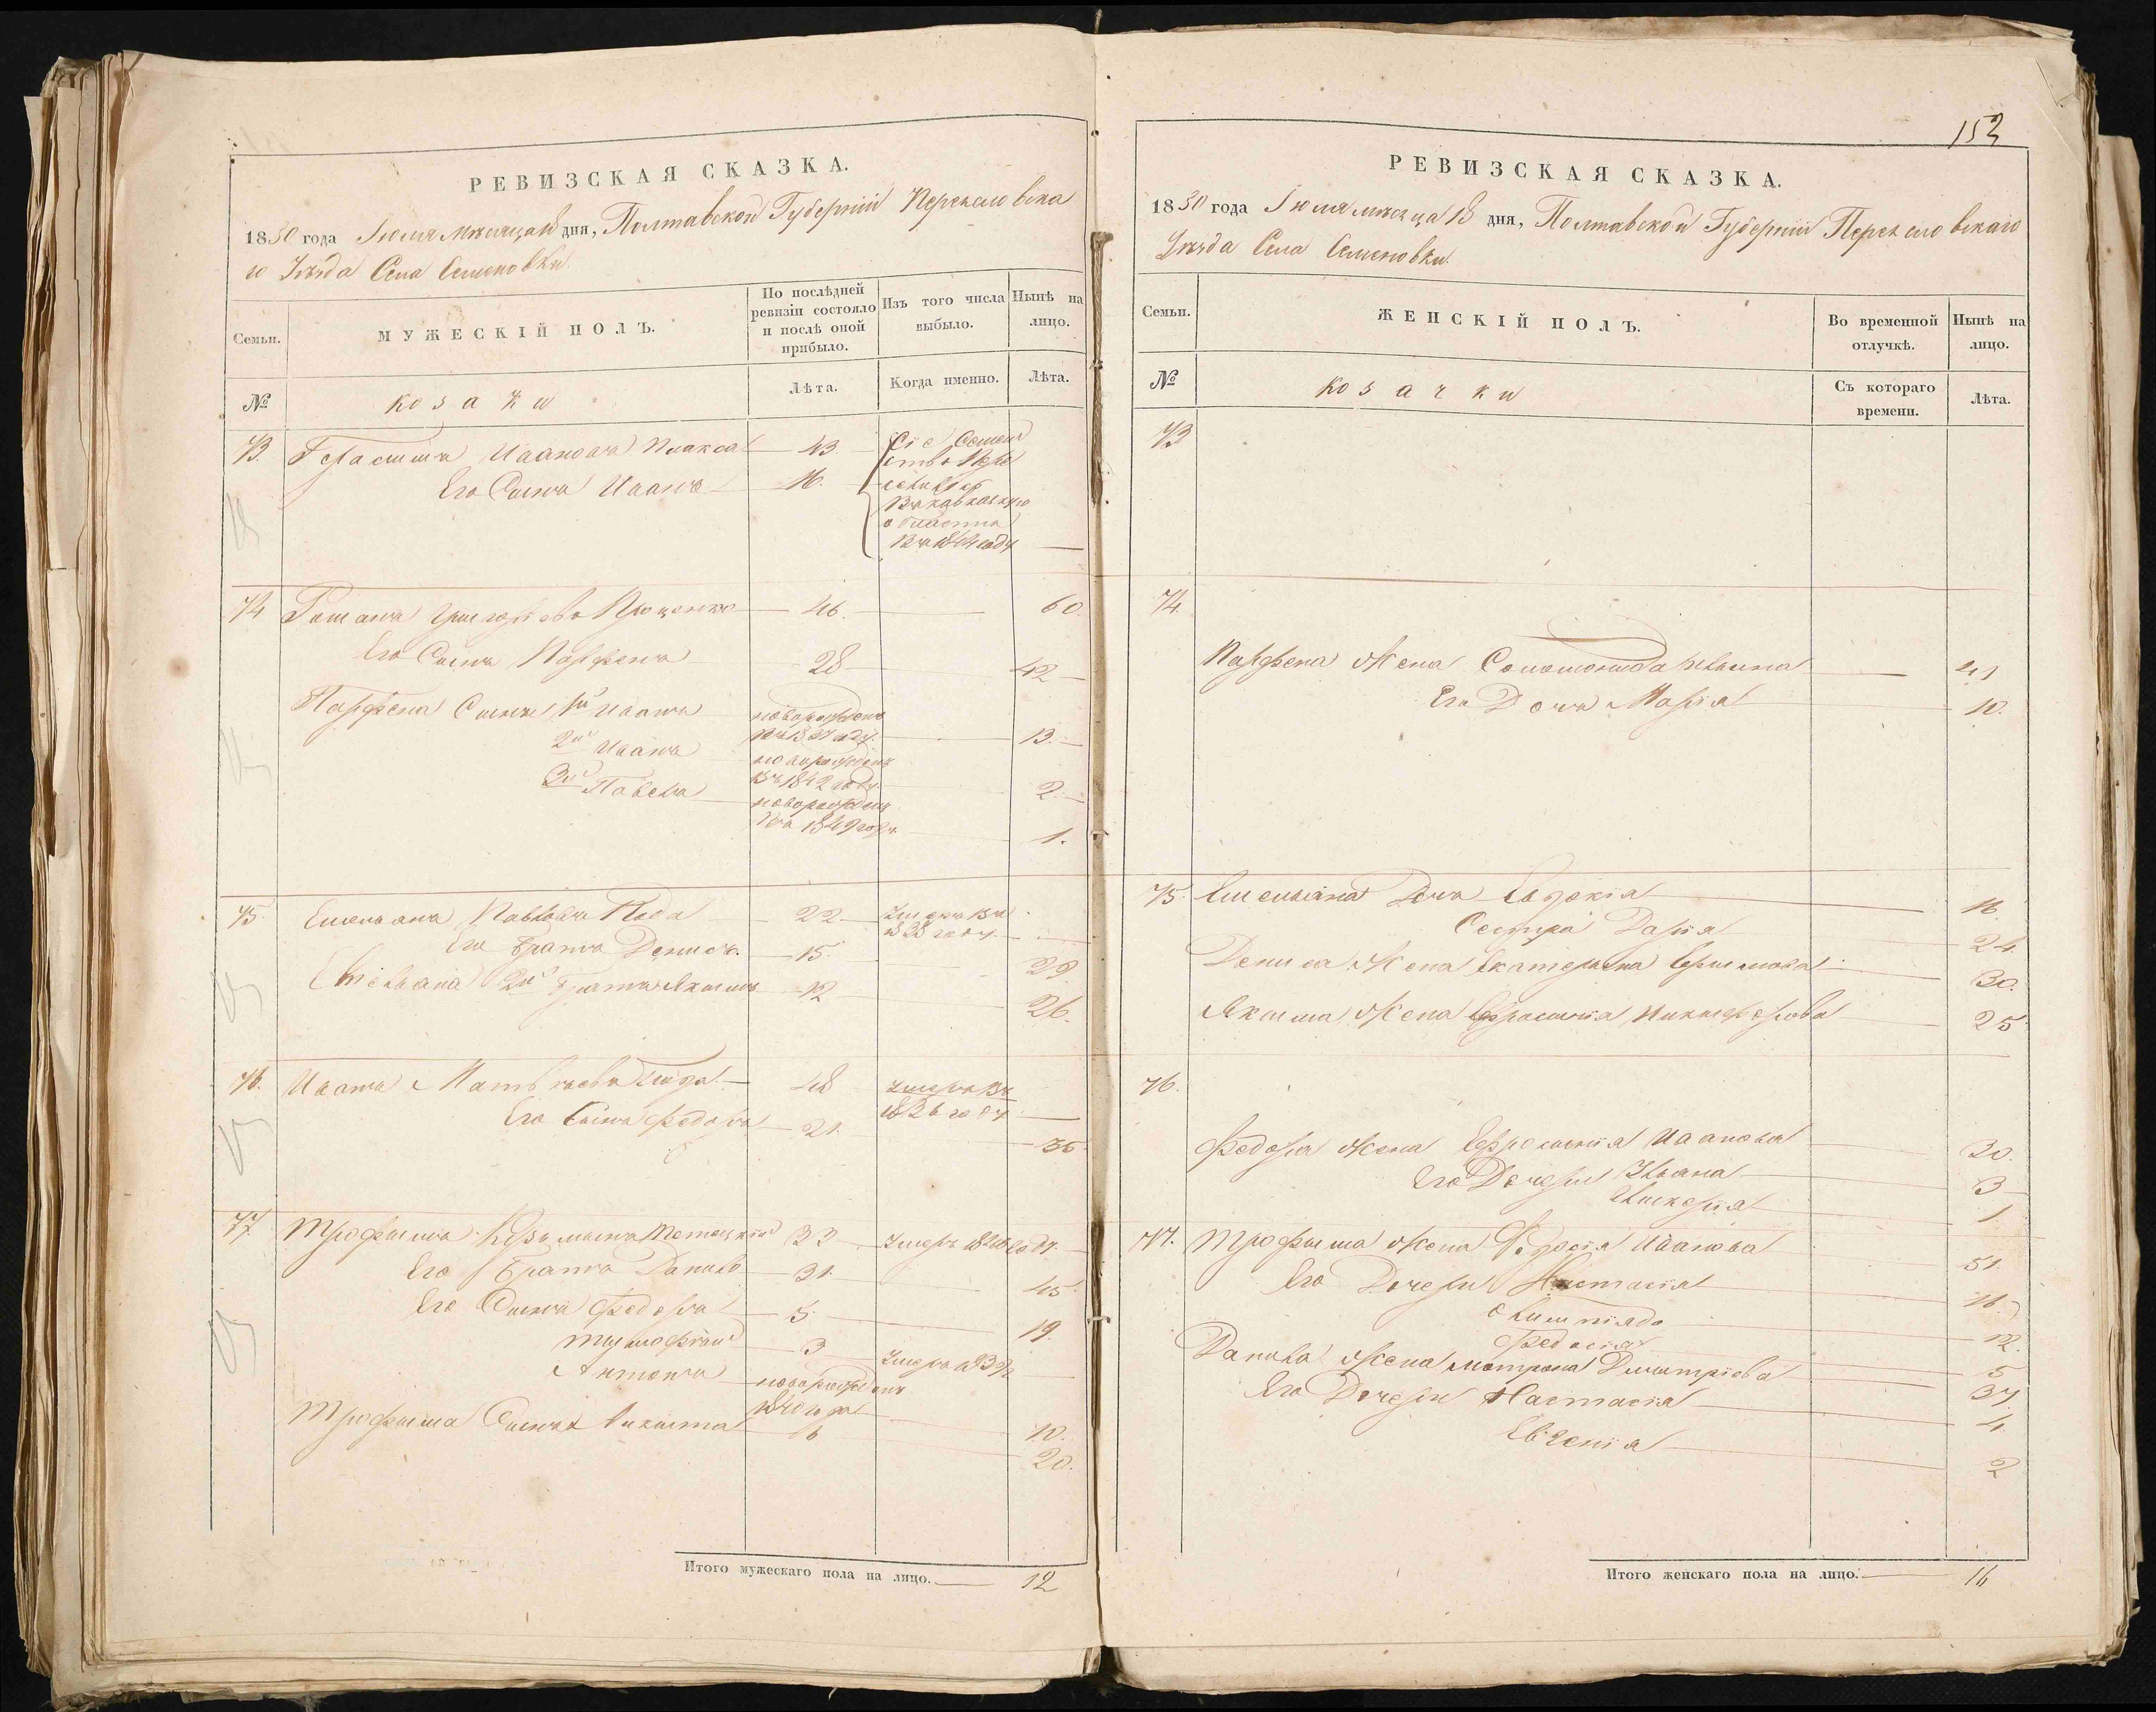 РЕВИЗСКАЯ СКАЗКА.
1850 года Июля месяца 18 дня, Полтавской Губернiи Переяславска
го Уѣзда Села Семеновки.
Семьи.
МУЖЕСКІЙ ПОЛЪ.
По послѣдней ревизіи состояло и послѣ оной прибыло.
Изъ того числа выбыло.
Нынѣ на лицо.
№
козаки
Лѣта.
Когда именно.
Лѣта.
73. Герасимъ Ивановъ 43. Сіе Семей
ство пере
Его Сынъ Иванъ 16.
селилось
въ кавказкую
область
въ 1844 году —
74 Романъ Григорьевъ Проценко 46. 60.
Его Сынъ Парфенъ 28 42
Парфена Сыны 1й Иванъ новорожденъ
въ 1837 году. 13.
2й Иванъ новорожденъ
въ 1842 году. 2.
3й Павелъ новорожденъ
въ 1849 году 1.
75. Емельянъ Павловъ 22 Умеръ въ
1838 году.
Его Братъ Денисъ. 15. 29
Емельяна 2й Братъ Якимъ 12 26.
76. Иванъ Матвѣевъ 48 Умеръ въ
1836 году
Его Сынъ Федоръ 21. 35
77. Трофимъ 33 Умеръ году.
Его Братъ Данило 31. 45
Его Сынъ Федоръ 5. 19.
Тимофѣй 3 Умеръ
Антонъ новорожденъ
1840 года 10.
Трофима Сынъ Никита 6 20.
Итого мужескаго пола на лицо. 12
152
РЕВИЗСКАЯ СКАЗКА.
1850 года Июля месяца 18 дня, Полтавской Губернiи Переяславскаго
Уѣзда Села Семеновки.
Семьи.
ЖЕНСКІЙ ПОЛЪ.
Во временной отлучкѣ.
Нынѣ на лицо.
№
козачки
Съ котораго времени.
Лѣта.
73
74.
Парфена Жена Соломонида 41
Его Дочь Марія 10.
75. Емельяна Дочь Евдокія 16.
Сестра Дарія 24.
Дениса Жена Екатерина Ефимова 30.
Якима Жена Ефросинія Никифорова 25
76.
Федора Жена Ефросинія Иванова 30.
Его Дочери Ульяна 3
Гликерія 1
77. Трофима Жена Федосія Иванова 51.
Его Дочери Настасія 16.
Олимпіяда 12.
Федосія 5
Данила Жена Матрона Димитріева 37
Его Дочери Настасія 4.
Евгенія 2
Итого женскаго пола на лицо. 16